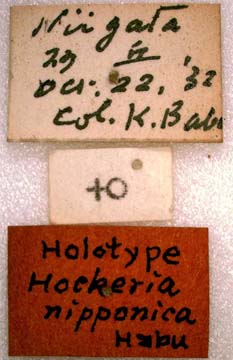 Niigata
Oct. 22, '32
Col. K. Babu
♀
Holotype
Hockeria
nipponica
Habu